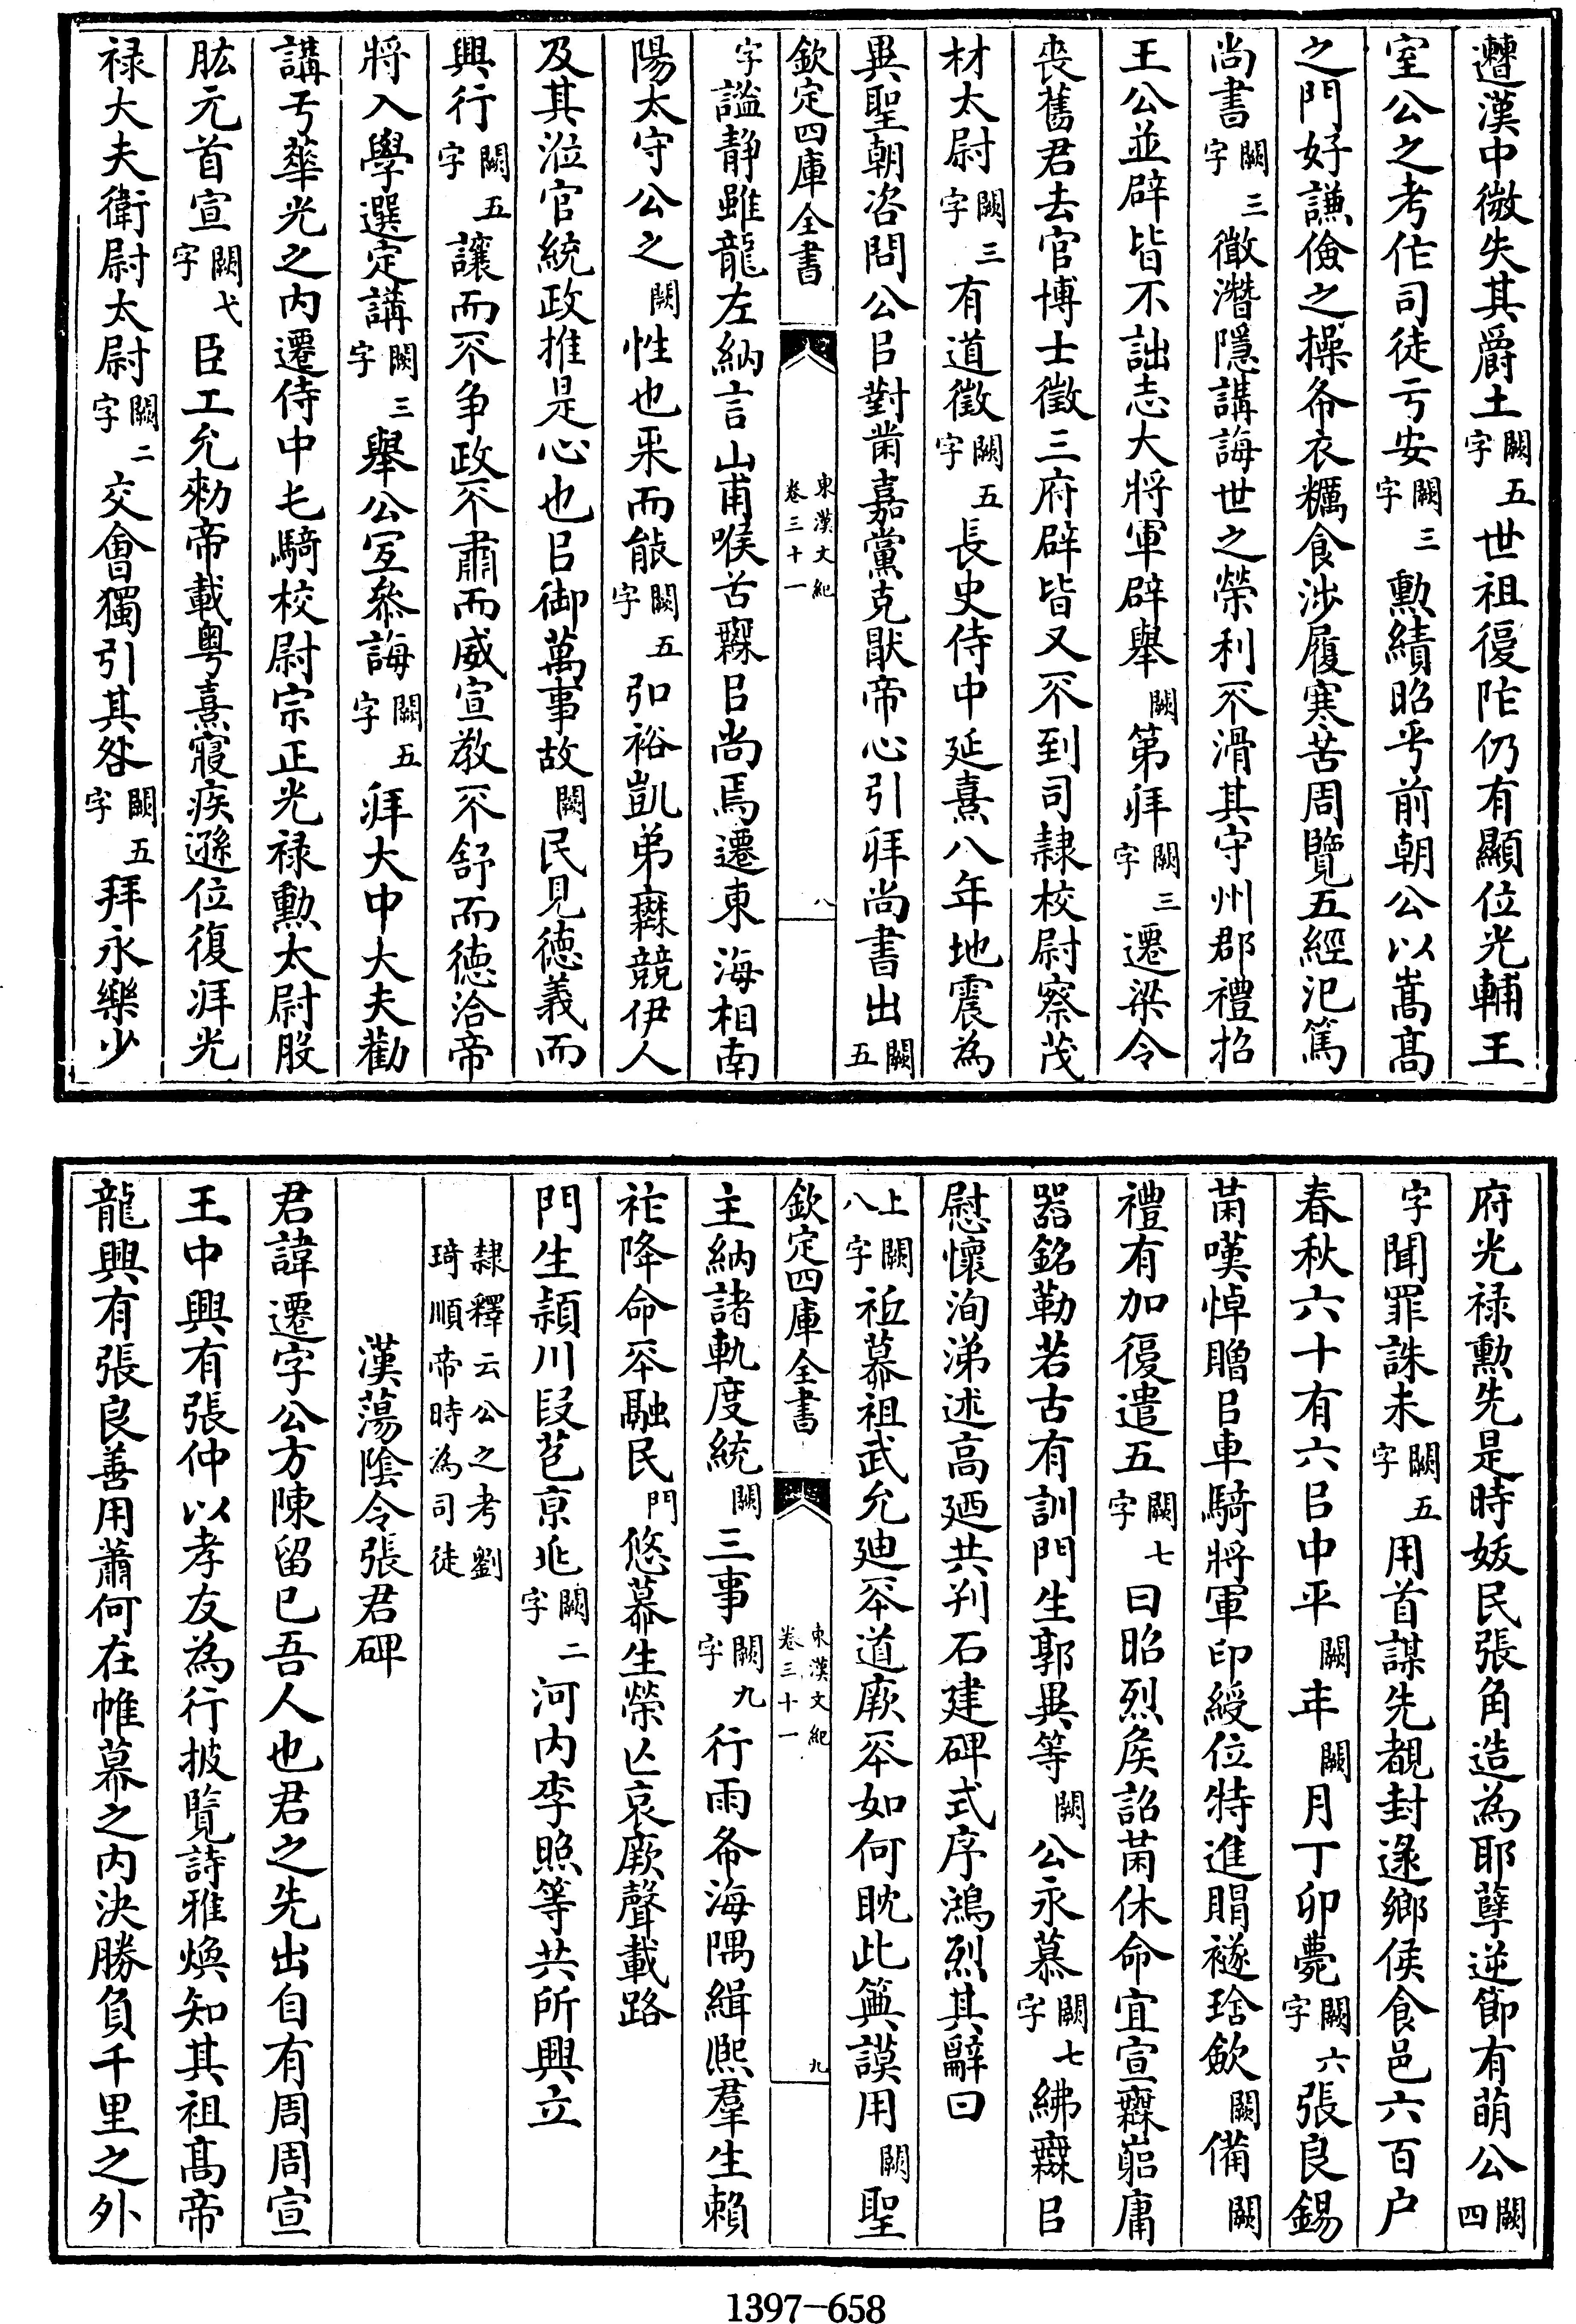 遭漢中微失其爵土闕五字世祖復阼仍有顯位光輔王
室公之考作司徒亏安闕三字勲績昭乎前朝公以嵩髙
之門好謙儉之操布衣糲食涉履寒苦周覽五經汜篤
尚書闕三字徴潛隱講誨世之榮利不滑其守州郡禮招
王公並辟皆不詘志大將軍辟舉闕第拜闕三字遷梁令
喪舊君去官博士徵三府辟皆又不到司隸校尉察茂
材太尉闕三字有道徵闕五字長史侍中延熹八年地震為
異聖朝咨問公㠯對㒼嘉黨克猒帝心引拜尚書出闕五
欽定四庫全書
東漢文紀
卷三十一
八
字謐靜雖龍左納言山甫喉舌無㠯尚焉遷東海相南
陽太守公之闕性也柔而能闕五字弘裕凱弟無競伊人
及其涖官統政推是心也㠯御萬事故闕民見德義而
興行闕五字讓而不争政不肅而威宣敎不舒而德洽帝
將入學選定講闕三字舉公宜叅誨闕五字拜大中大夫勸
講亏華光之内遷侍中屯騎校尉宗正光禄勲太尉股
肱元首宣闕弋字臣工允勑帝載粤熹寢疾遜位復拜光
禄大夫衛尉太尉闕二字交會獨引其咎闕五字拜永樂少
府光禄勲先是時妭民張角造為耶孽逆節有萌公闕四
字聞罪誅未闕五字用首謀先覩封逯鄉侯食邑六百户
春秋六十有六㠯中平闕年闕月丁卯薨闕六字張良錫
㒼嘆悼贈㠯車騎將軍印綬位特進賵襚琀歛闕備闕
禮有加復遣五闕七字曰昭烈矦詔㒼休命宜宣無嵹庸
器銘勒若古有訓門生郭異等闕公永慕闕七字紼無㠯
慰懷洵涕述高廼共刋石建碑式序鴻烈其辭曰
上闕八字祗慕祖武允迪丕道厥丕如何眈此典謨用闕聖
欽定四庫全書
東漢文紀
卷三十一
九
主納諸軌度統闕三事闕九字行雨布海隅緝熈羣生賴
祉降命丕融民門悠慕生榮亾哀厥聲載路
門生潁川段芑京兆闕二字河内李照等共所興立
隸釋云公之考劉
琦順帝時為司徒
漢蕩陰令張君碑
君諱遷字公方陳留已吾人也君之先出自有周周宣
王中興有張仲以孝友為行披覧詩雅煥知其祖髙帝
龍興有張良善用蕭何在帷幕之内決勝負千里之外
1397-658